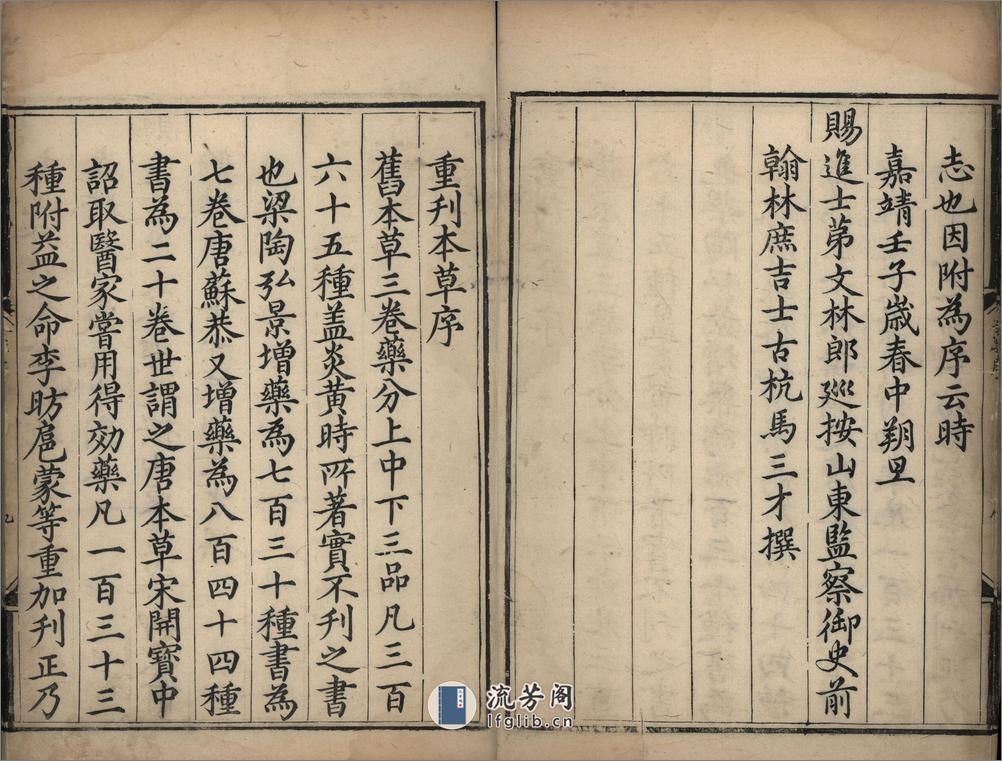 志也因附為序云時
嘉靖壬子歲春中朔旦
賜進士第文林郎巡按山東監察御史前
翰林庶吉士古杭馬三才撰
重刋本草序
舊本草三卷藥分上中下三品凡三百
六十五種盖炎黃時所著實不刋之書
也梁陶弘景增藥為七百三十種書為
七卷唐蘇恭又增藥為八百四十四種
書為二十卷世謂之唐本草宋開寳中
詔取醫家嘗用得効藥凡一百三十三
種附益之命李昉扈蒙等重加刋正乃
九
流芳阁
lfglib.cn